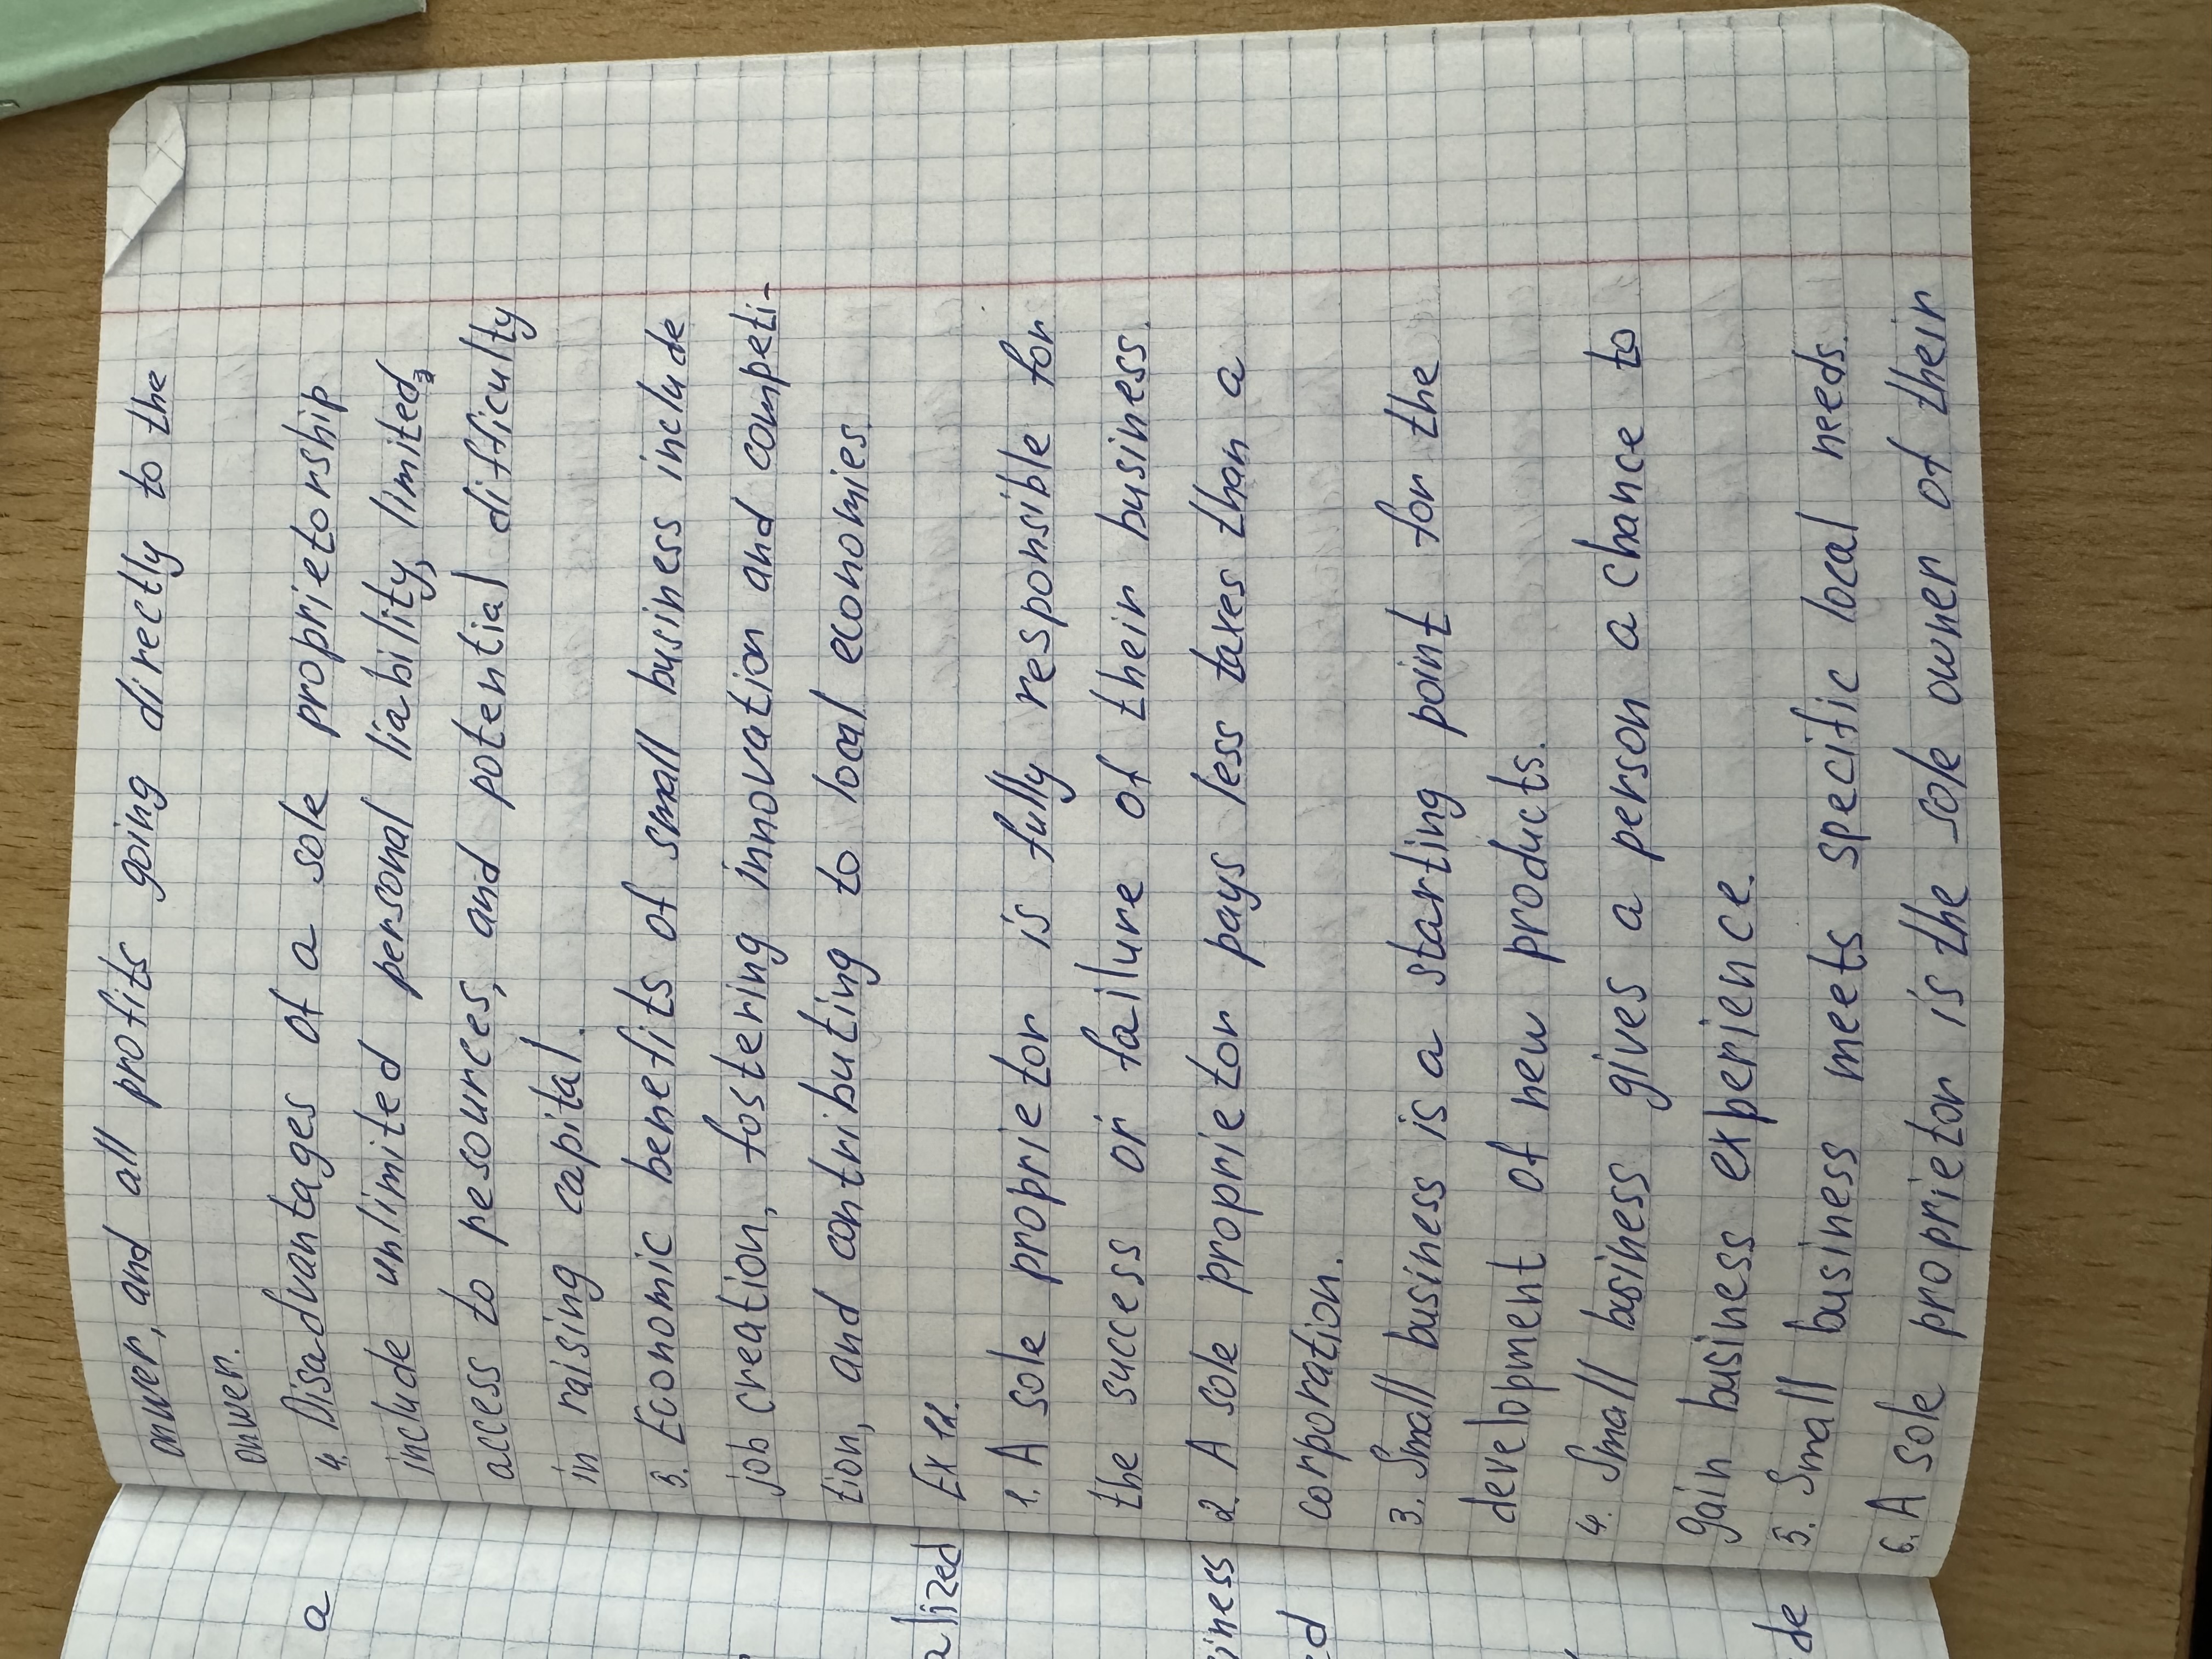 onwer, and all profits going directly to the
onwer.
4. Disadvantages of a sole proprietorship
include unlimited personal liability, limited,
access to pesources, and potential difficulty
in raising capital.
5. Economic benefits of small business include
job creation, fostering innovation and competi-
tion, and contributing to local economies.
Ex 11.
1. A sole proprietor is fully responsible for
the success or failure of their business.
2. A sole proprietor pays less taxes than a
corporation.
3. Small business is a starting point for the
development of new products.
4. Small business gives a person a chance to
gain business experience.
5. Small business meets specific local needs.
6. A sole proprietor is the sole owner of their
a
alized
iness
ed
de